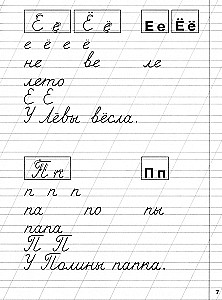 Ее Ёё Ее Ёё
е ё е ё
не ве ле
лето
Е Е
У Лёвы вёсла.
Пп Пп
п п п
па по пы
папа
П П
У Полины паппа.
7